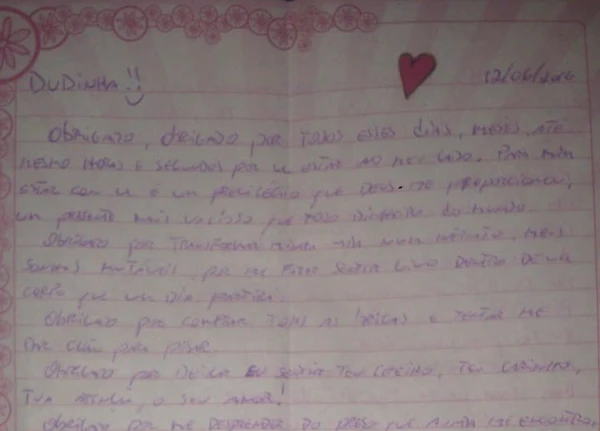 DUDINHA!!
12/06/2016
Obrigado, obrigado por todos esses dias, meses, até
mesmo horas e segundos por vc estar ao meu lado. Para mim
estar com vc é um privilégio que DEUS me proporcionou,
um presente mais valioso que todo dinheiro do mundo.
Obrigado por transformar minha vida numa
por me fazer sentir vivo dentro de um
corpo que um dia
Obrigado por comprar todas as brigas e tentar me
Obrigado por deixar eu sentir teu cheiro, teu carinho,
tua atenção, o seu amor!
Obrigado por me do que ainda me encontro,